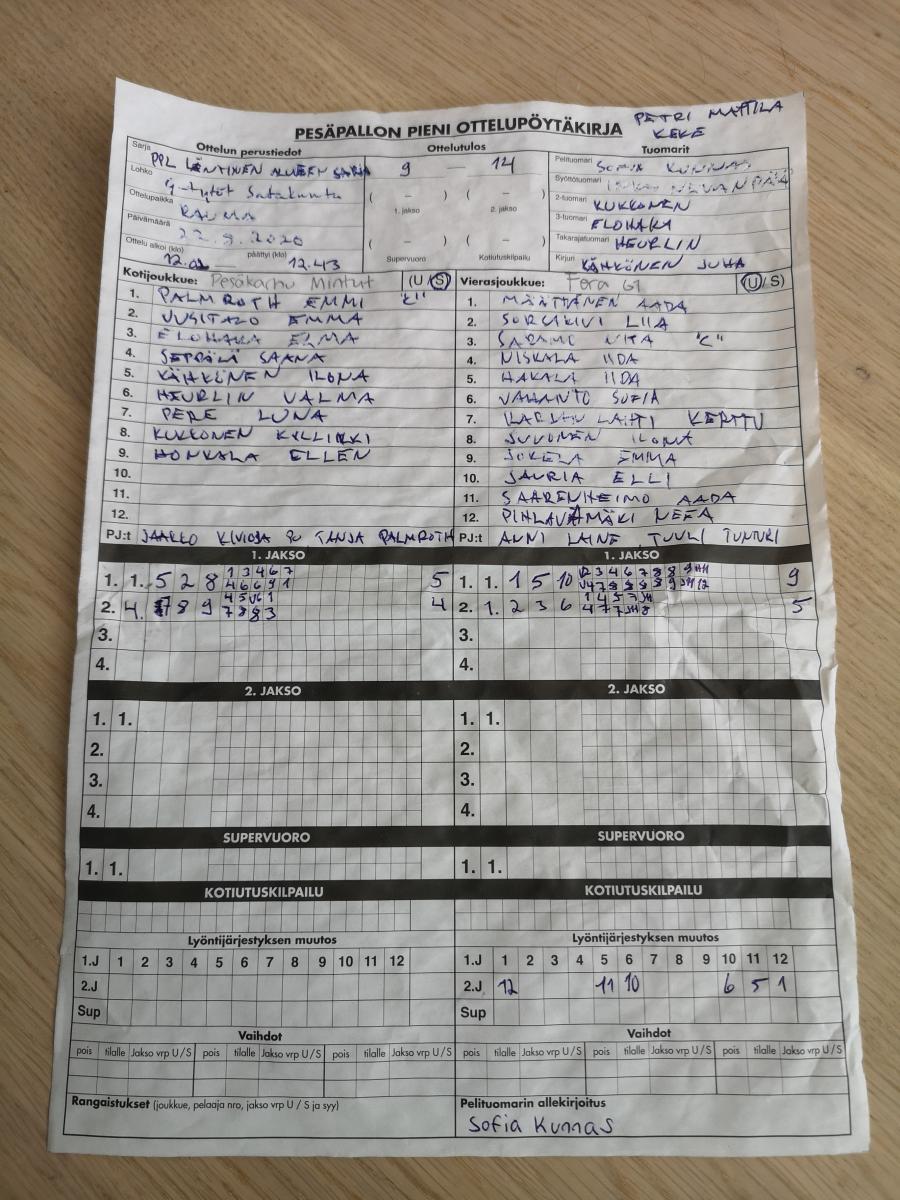 PESÄPALLON PIENI OTTELUPÖYTÄKIRJA
PETRI MATTILA
KEKE
Ottelun perustiedot
Ottelutulos
Tuomarit
Sarja PPL LÄNTINEN ALUEEN SARJA
Lohko G-tytöt Satakunta
Ottelupaikka RAUMA
Päivämäärä 22.9.2020
Ottelu alkoi (klo) 12.02 – päättyi (klo) 12.43
9 — 14
( – ) ( – )
1. jakso 2. jakso
( – ) ( – )
Supervuoro Kotiutuskilpailu
Pelituomari SOFIA KUNNAS
Syöttötuomari
2-tuomari KUKKONEN
3-tuomari ELOHAKA
Takarajatuomari HEURLIN
Kirjuri KÄHKÖNEN JUHA
Kotijoukkue: Pesäkarhu Mintut (U/S)
1. PALMROTH EMMI "C"
2. UUSITALO EMMA
3. ELOHAKA ELMA
4. SEPPÄLÄ SAANA
5. KÄHKÖNEN ILONA
6. HEURLIN VALMA
7. PERE LUNA
8. KUKKONEN KYLLIKKI
9. HONKALA ELLEN
10.
11.
12.
PJ:t JAAKKO KIVIOJA TANJA PALMROTH
Vierasjoukkue: Fera G1 (U/S)
1. MÄÄTTÄNEN AADA
2. SORCIKIVI LIIA
3. SARAMO "C"
4. NISKALA IIDA
5. HAKALA IIDA
6. VAHANTO SOFIA
7. KERTTU
8. SUVINEN ILONA
9. JOKELA EMMA
10. SAURIA ELLI
11. SAARENHEIMO AADA
12. PIHLAVAMÄKI NEEA
PJ:t ANNI LAINE TUULI TUNTURI
1. JAKSO
1. 1. 5 2 8 1 3 4 6 7 5
4 6 6 9 1
2. 4. 7 8 9 4 5 V6 1 4
7 8 8 3
3.
4.
1. JAKSO
1. 1. 1 5 10 9
2. 1. 2 3 6 5
3.
4.
2. JAKSO
1. 1.
2.
3.
4.
2. JAKSO
1. 1.
2.
3.
4.
SUPERVUORO
1. 1.
SUPERVUORO
1. 1.
KOTIUTUSKILPAILU
KOTIUTUSKILPAILU
Lyöntijärjestyksen muutos
1.J 1 2 3 4 5 6 7 8 9 10 11 12
2.J
Sup
Lyöntijärjestyksen muutos
1.J 1 2 3 4 5 6 7 8 9 10 11 12
2.J 12 11 10 6 5 1
Sup
Vaihdot
pois tilalle Jakso vrp U/S pois tilalle Jakso vrp U/S pois tilalle Jakso vrp U/S
Vaihdot
pois tilalle Jakso vrp U/S pois tilalle Jakso vrp U/S pois tilalle Jakso vrp U/S
Rangaistukset (joukkue, pelaaja nro, jakso vrp U / S ja syy)
Pelituomarin allekirjoitus
Sofia Kunnas